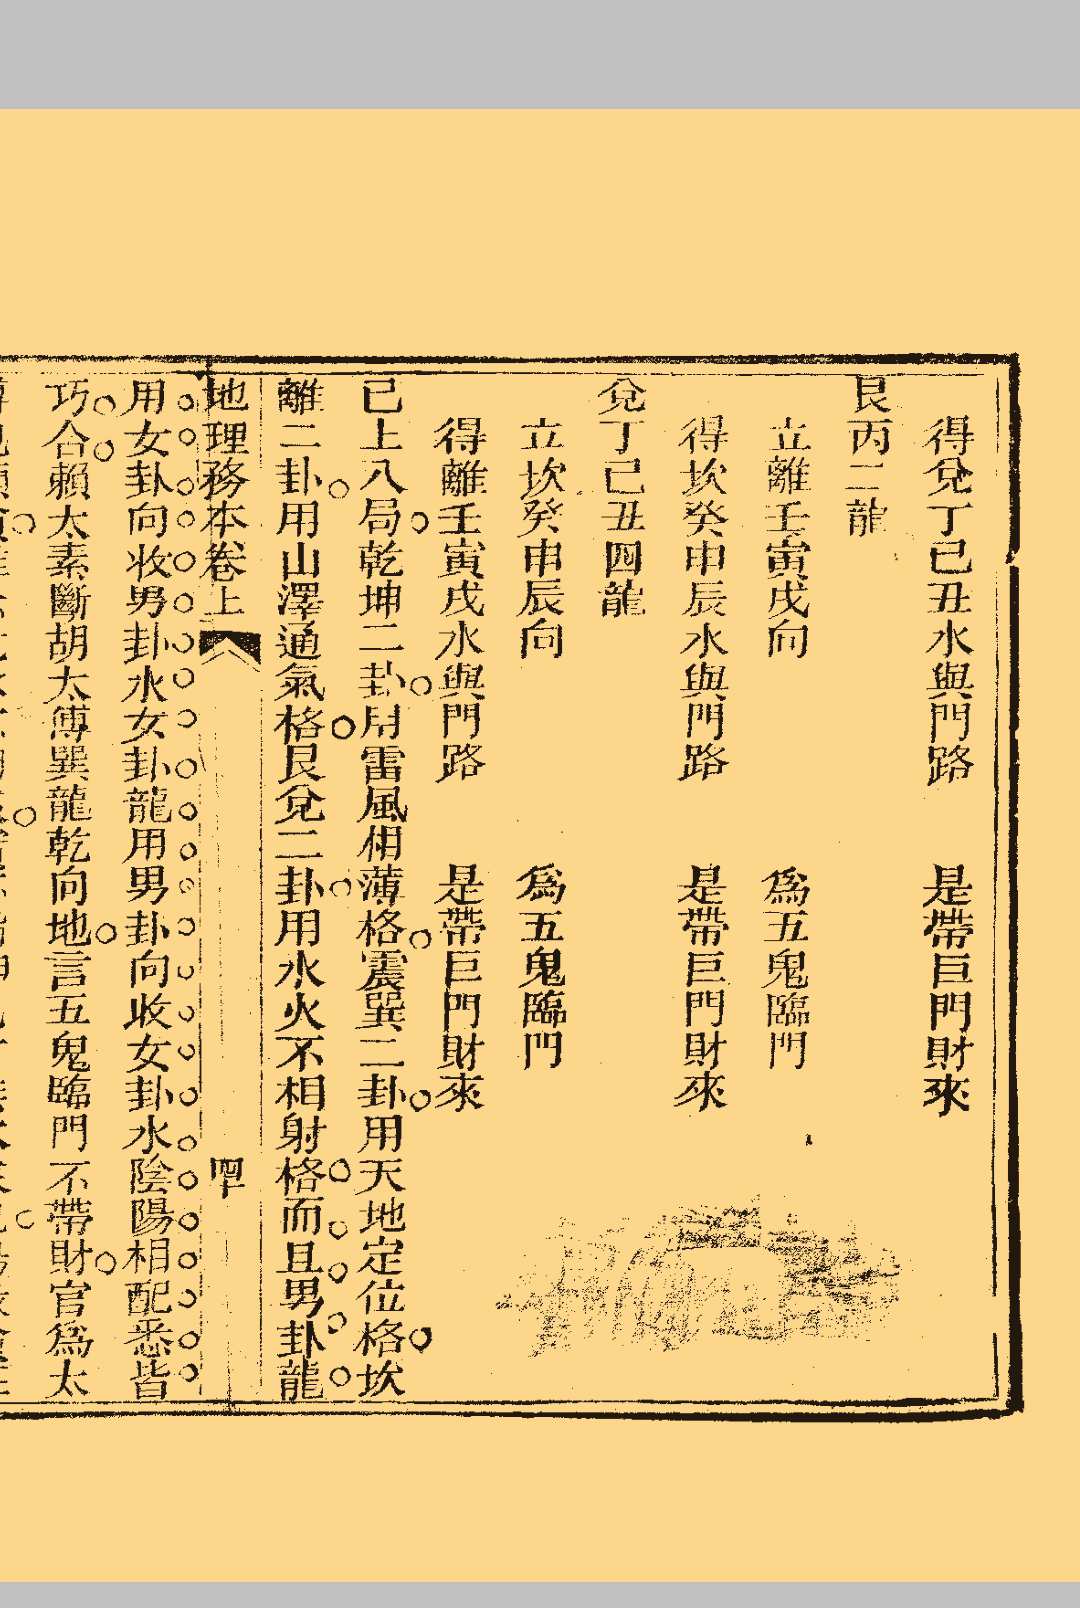 得兌丁巳丑水與門路　是帶巨門財來
艮丙二龍
立離壬寅戌向　為五鬼臨門
得坎癸申辰水與門路　是帶巨門財來
兌丁巳丑四龍
立坎癸申辰向　為五鬼臨門
得離壬寅戌水與門路　是帶巨門財來
已上八局乾坤二卦用雷風相薄格震巽二卦用天地定位格坎
離二卦用山澤通氣格艮兌二卦用水火不相射格而且男卦龍
地理務本卷上　四十
用女卦向收男卦水女卦龍用男卦向收女卦水陰陽相配悉皆
巧合賴太素斷胡太傅巽龍乾向地言五鬼臨門不帶財官為太